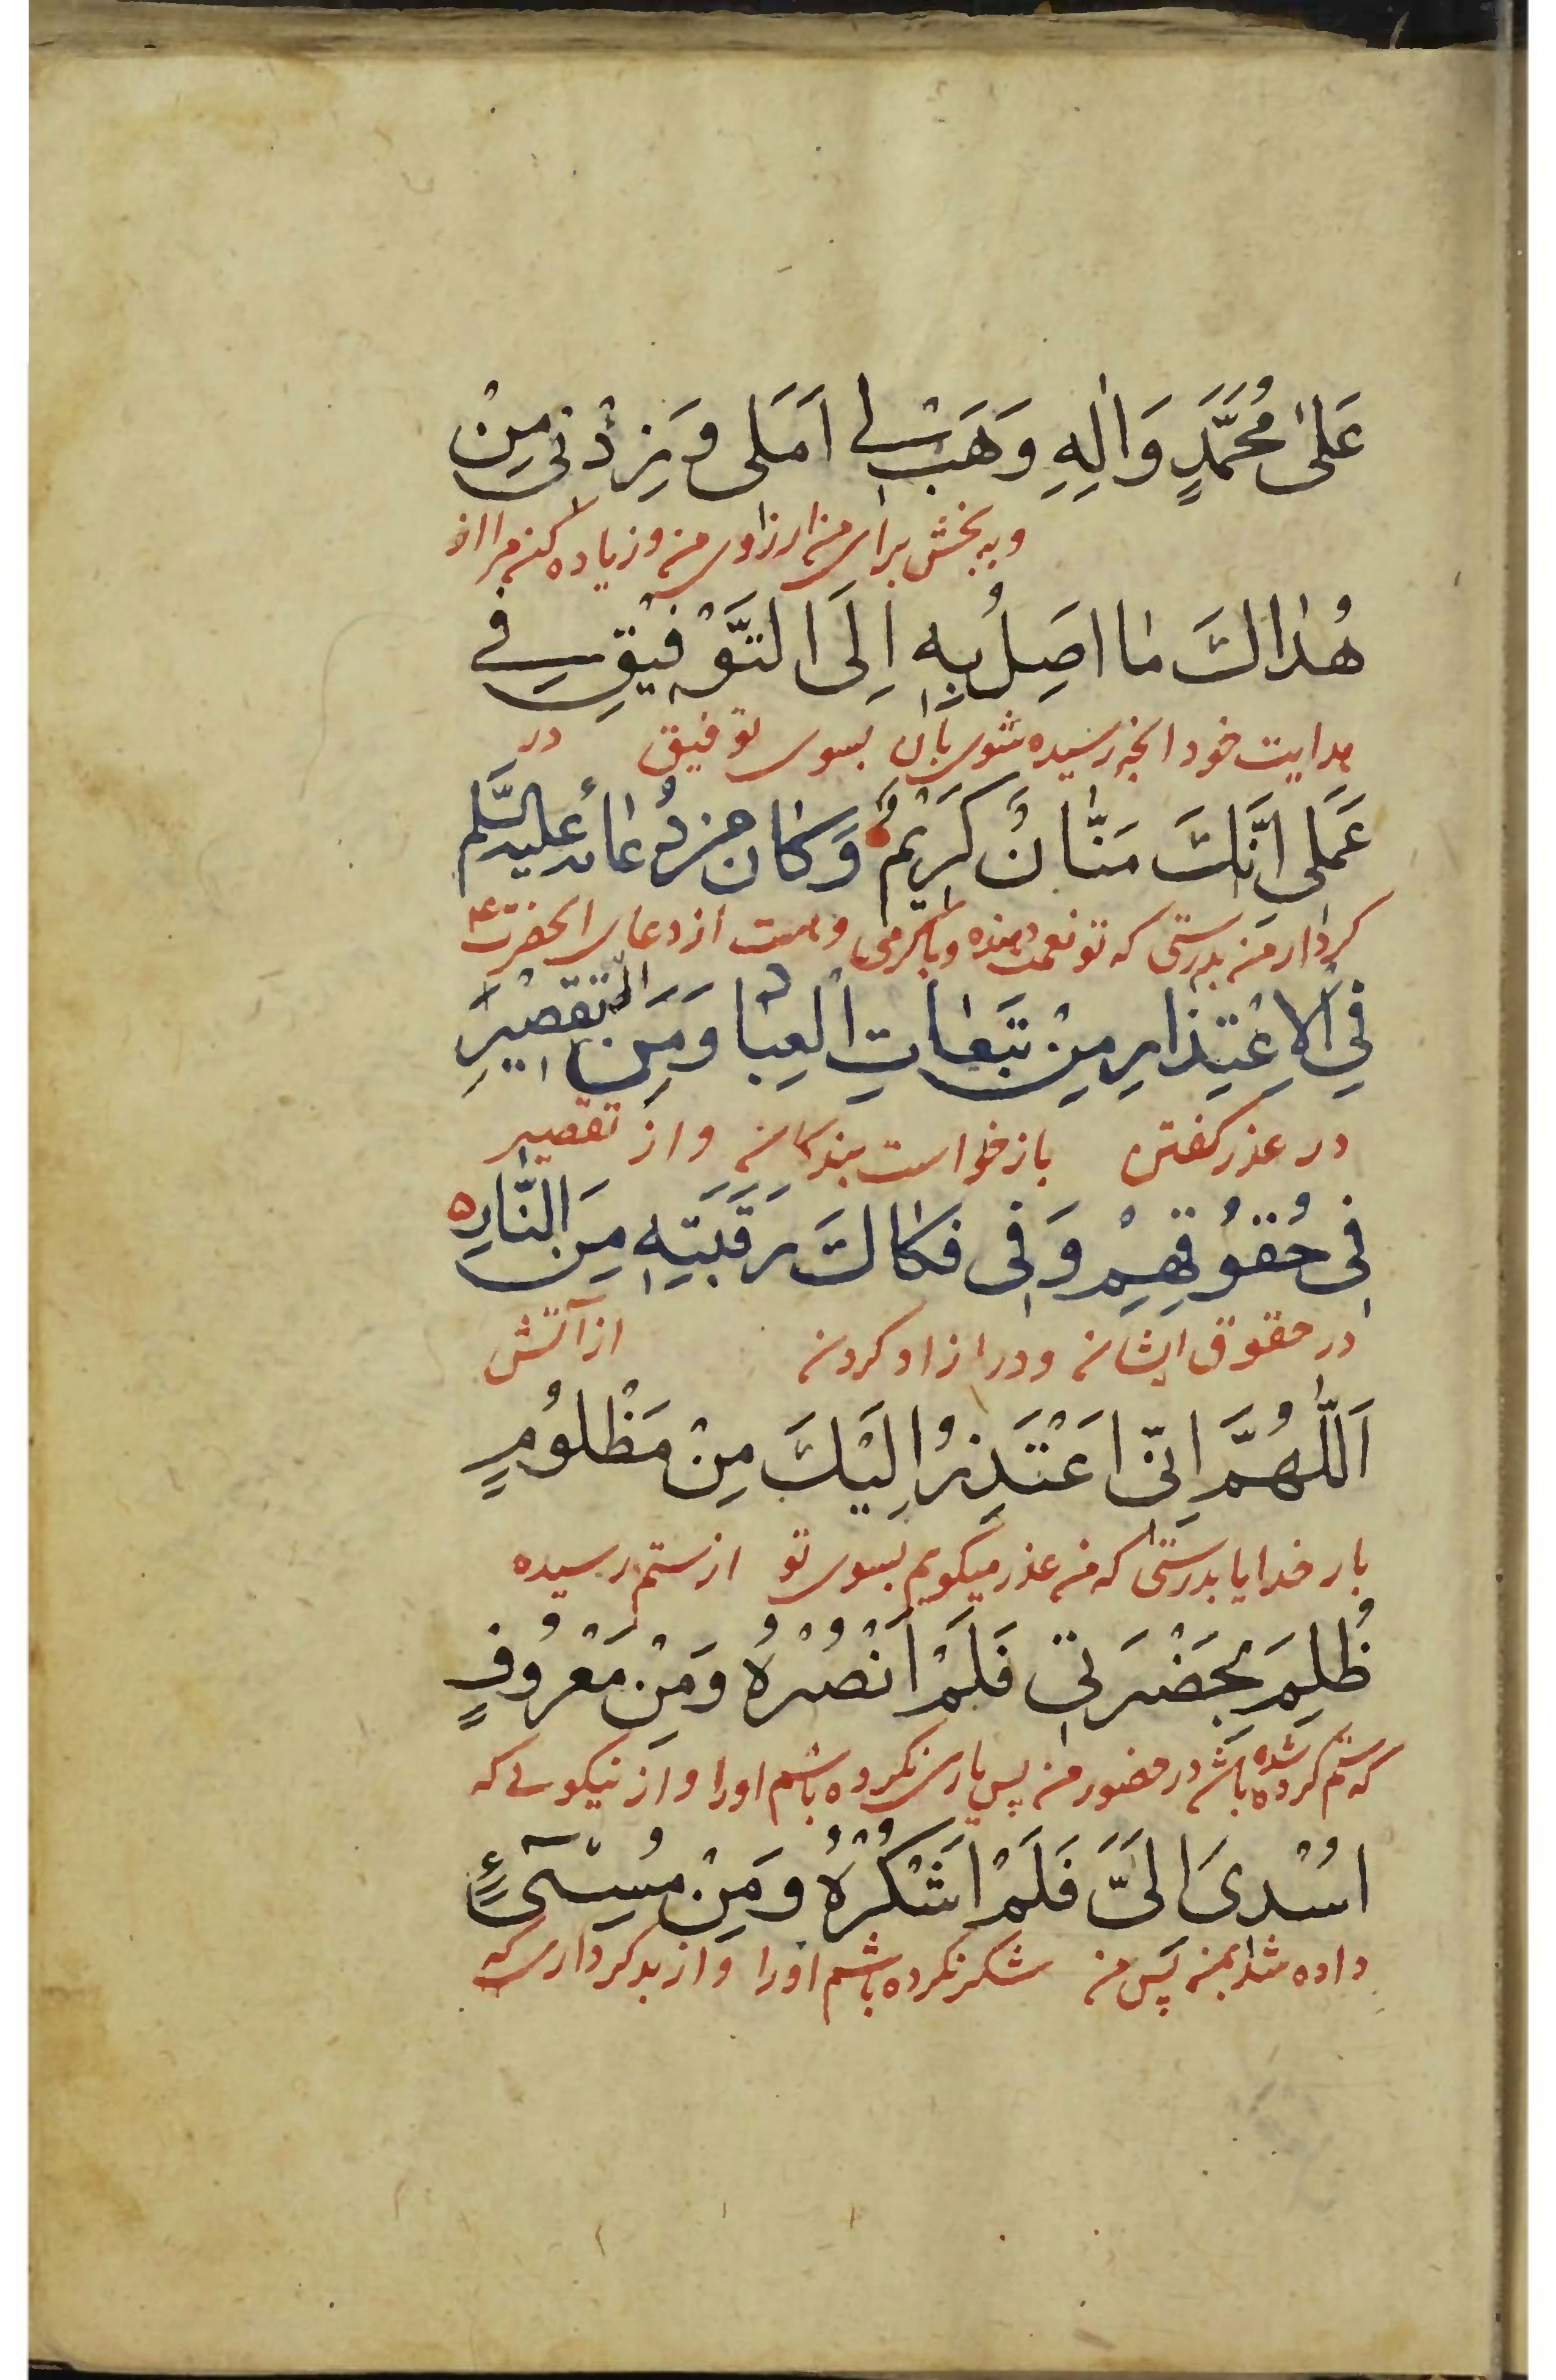 عَلىٰ مُحَمَّدٍ وَاٰلِهِ وَهَبْ لِے اَمَلى وَزِدْنى مِنْ
و به بخش براى من ارزاوى من و زياده كن مرا از
هُدٰاكَ مٰا اَصِلُ بِهِ اِلَى التَّوْفِيْقِ فِے
هدايت خود انچه رسيده شوى بان بسوى توفيق در
عَمَلى اِنَّكَ مَنّٰانٌ كَرَيْمٌ وَكٰانَ مِنْ دُعٰائِهِ عليه السّلم
كردار من بدرستى كه تو نعمت دهنده و باكرمى و هست از دعاى انحضرت ع
فِي الْاِعْتِذٰارِ مِنْ تَبَعٰاتِ الْعِبٰادِ وَمِنَ التَّقْصِيْرِ
در عذر كفتن بازخواست بندكان و از تقصير
فِى حُقُوْقِهِمْ وَفِى فَكٰاكَ رَقَبَتِهِ مِنَ النّٰارِ ه
در حقوق ايشان و در ازاد كردن از آتش
اَللّٰهُمَّ اِنّى اَعْتَذِرُ اِلَيْكَ مِنْ مَظْلُومٍ
بار خدايا بدرستى كه من عذر ميكويم بسوى تو از ستم رسيده
ظُلِمَ بِحَضْرَتِي فَلَمْ اَنْصُرْهُ وَمِنْ مَعْرُوفٍ
كه ستم كرده شده باشد در حضور من پس يارى نكرده باشم اورا و از نيكوئے كه
اُسْدِىَ اِلَىَّ فَلَمْ اَشْكُرْهُ وَمِنْ مُسِیْٓءٍ
داده شد بمن پس من شكر نكرده باشم اورا و از بدكردارى كه